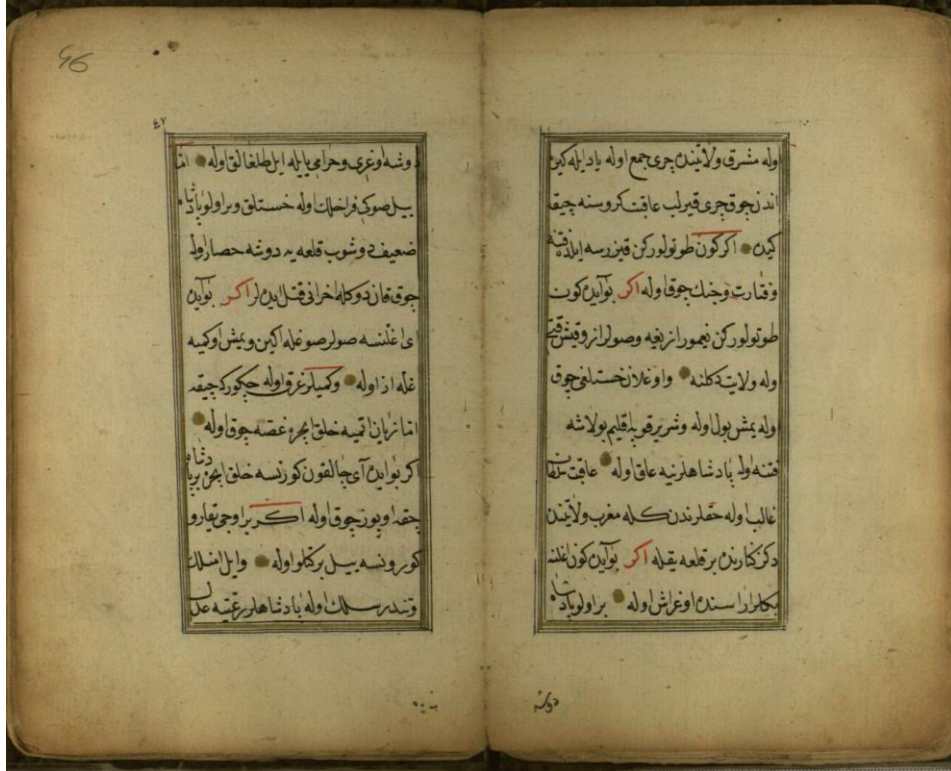 وله مشرق ولايتنده چرى جمع اوله يادايله كين
اندن چوق چرى قيرلب عاقبت كروسنه چيقه
كيده اكر كون طوتولوركن قيزرسه ايلده فتنه
وغارت وجنك چوق اوله اكر بو آيده كون
طوتولوركن يغمور از يغه وصولر از وقيش قتى
وله ولايت دكلنه واوغلان خستلغى چوق
وله يمش بول اوله وشرير قوپه اقليم بولاشه
فتنه اوله پادشاهلرينه عاق اوله عاقبت
غالب اوله حقلرندن كله مغرب ولايتندن
دكز كنارنده بر قلعه يقله اكر بو آيده كون اغلنه
بكلر اراسنده اوغراش اوله بر اولو پادشاه
دوشه
٤٧
46
دوشه اوغرى وحرامى ايله ايل طلغالق اوله اما
ييل صوكى فراخلك اوله خستلق وبر اولو پادشاه
ضعيف دوشوب قلعه يه دوشه حصار اوله
چوق قان دوكله اخرانى قتل ايده لر اكر بو آيده
اى اغلنسه صولر صوغله اكين ويمش اوكيه
غله از اوله وكميلر غرق اوله چكوركه چيقه
اما زيان اتميه خلق ايچره غصه چوق اوله
اكر بو ايده آى چالقون كورنسه خلق ايچره بر پادشاه
چقه اويوز چوق اوله اكر بر اوجى يقارو
كورونسه ييل بركتلو اوله وايل امنلك
وتندرسلك اوله پادشاهلر رعيته عدل